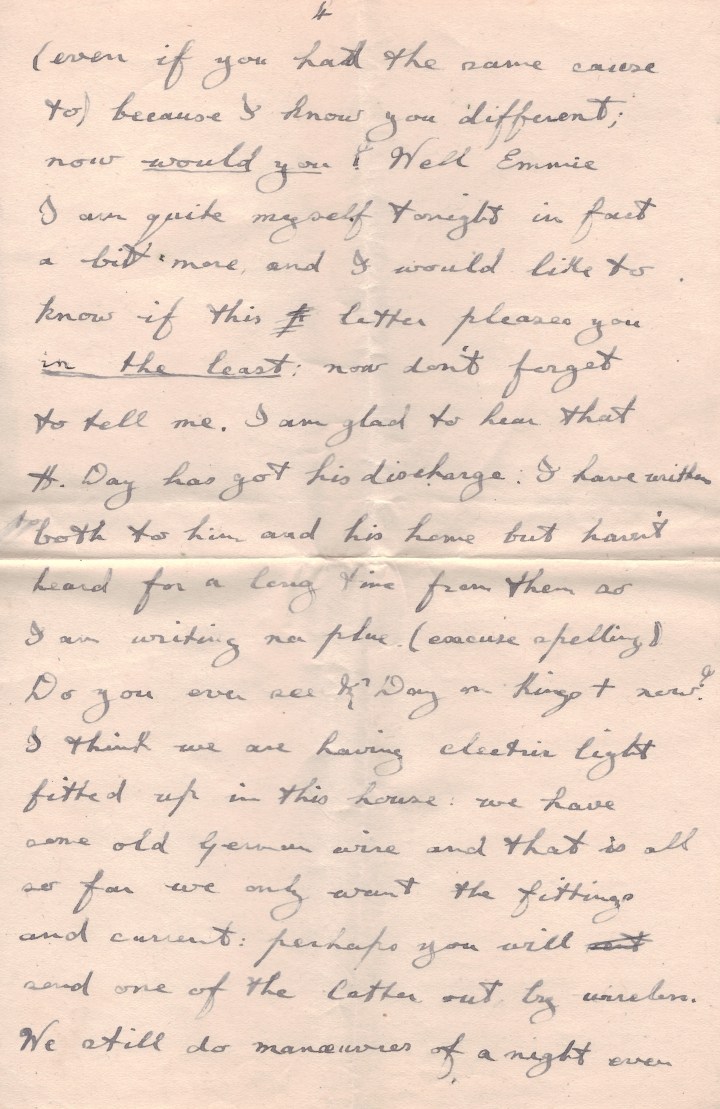 4
(even if you had the same cause
to) because I know you different;
now would you? Well Emmie
I am quite myself tonight in fact
a bit more, and I would like to
know if this letter pleases you
in the least: now don't forget
to tell me. I am glad to hear that
H. Day has got his discharge: I have written
both to him and his home but havn't
heard for a long time from them so
I am writing na plue. (excuse spelling)
Do you ever see Day on now?
I think we are having electric light
fitted up in this house: we have
some old German wire and that is all
so far we only want the fittings
and current: perhaps you will
send one of the latter out by wireless.
We still do manœuvres of a night even